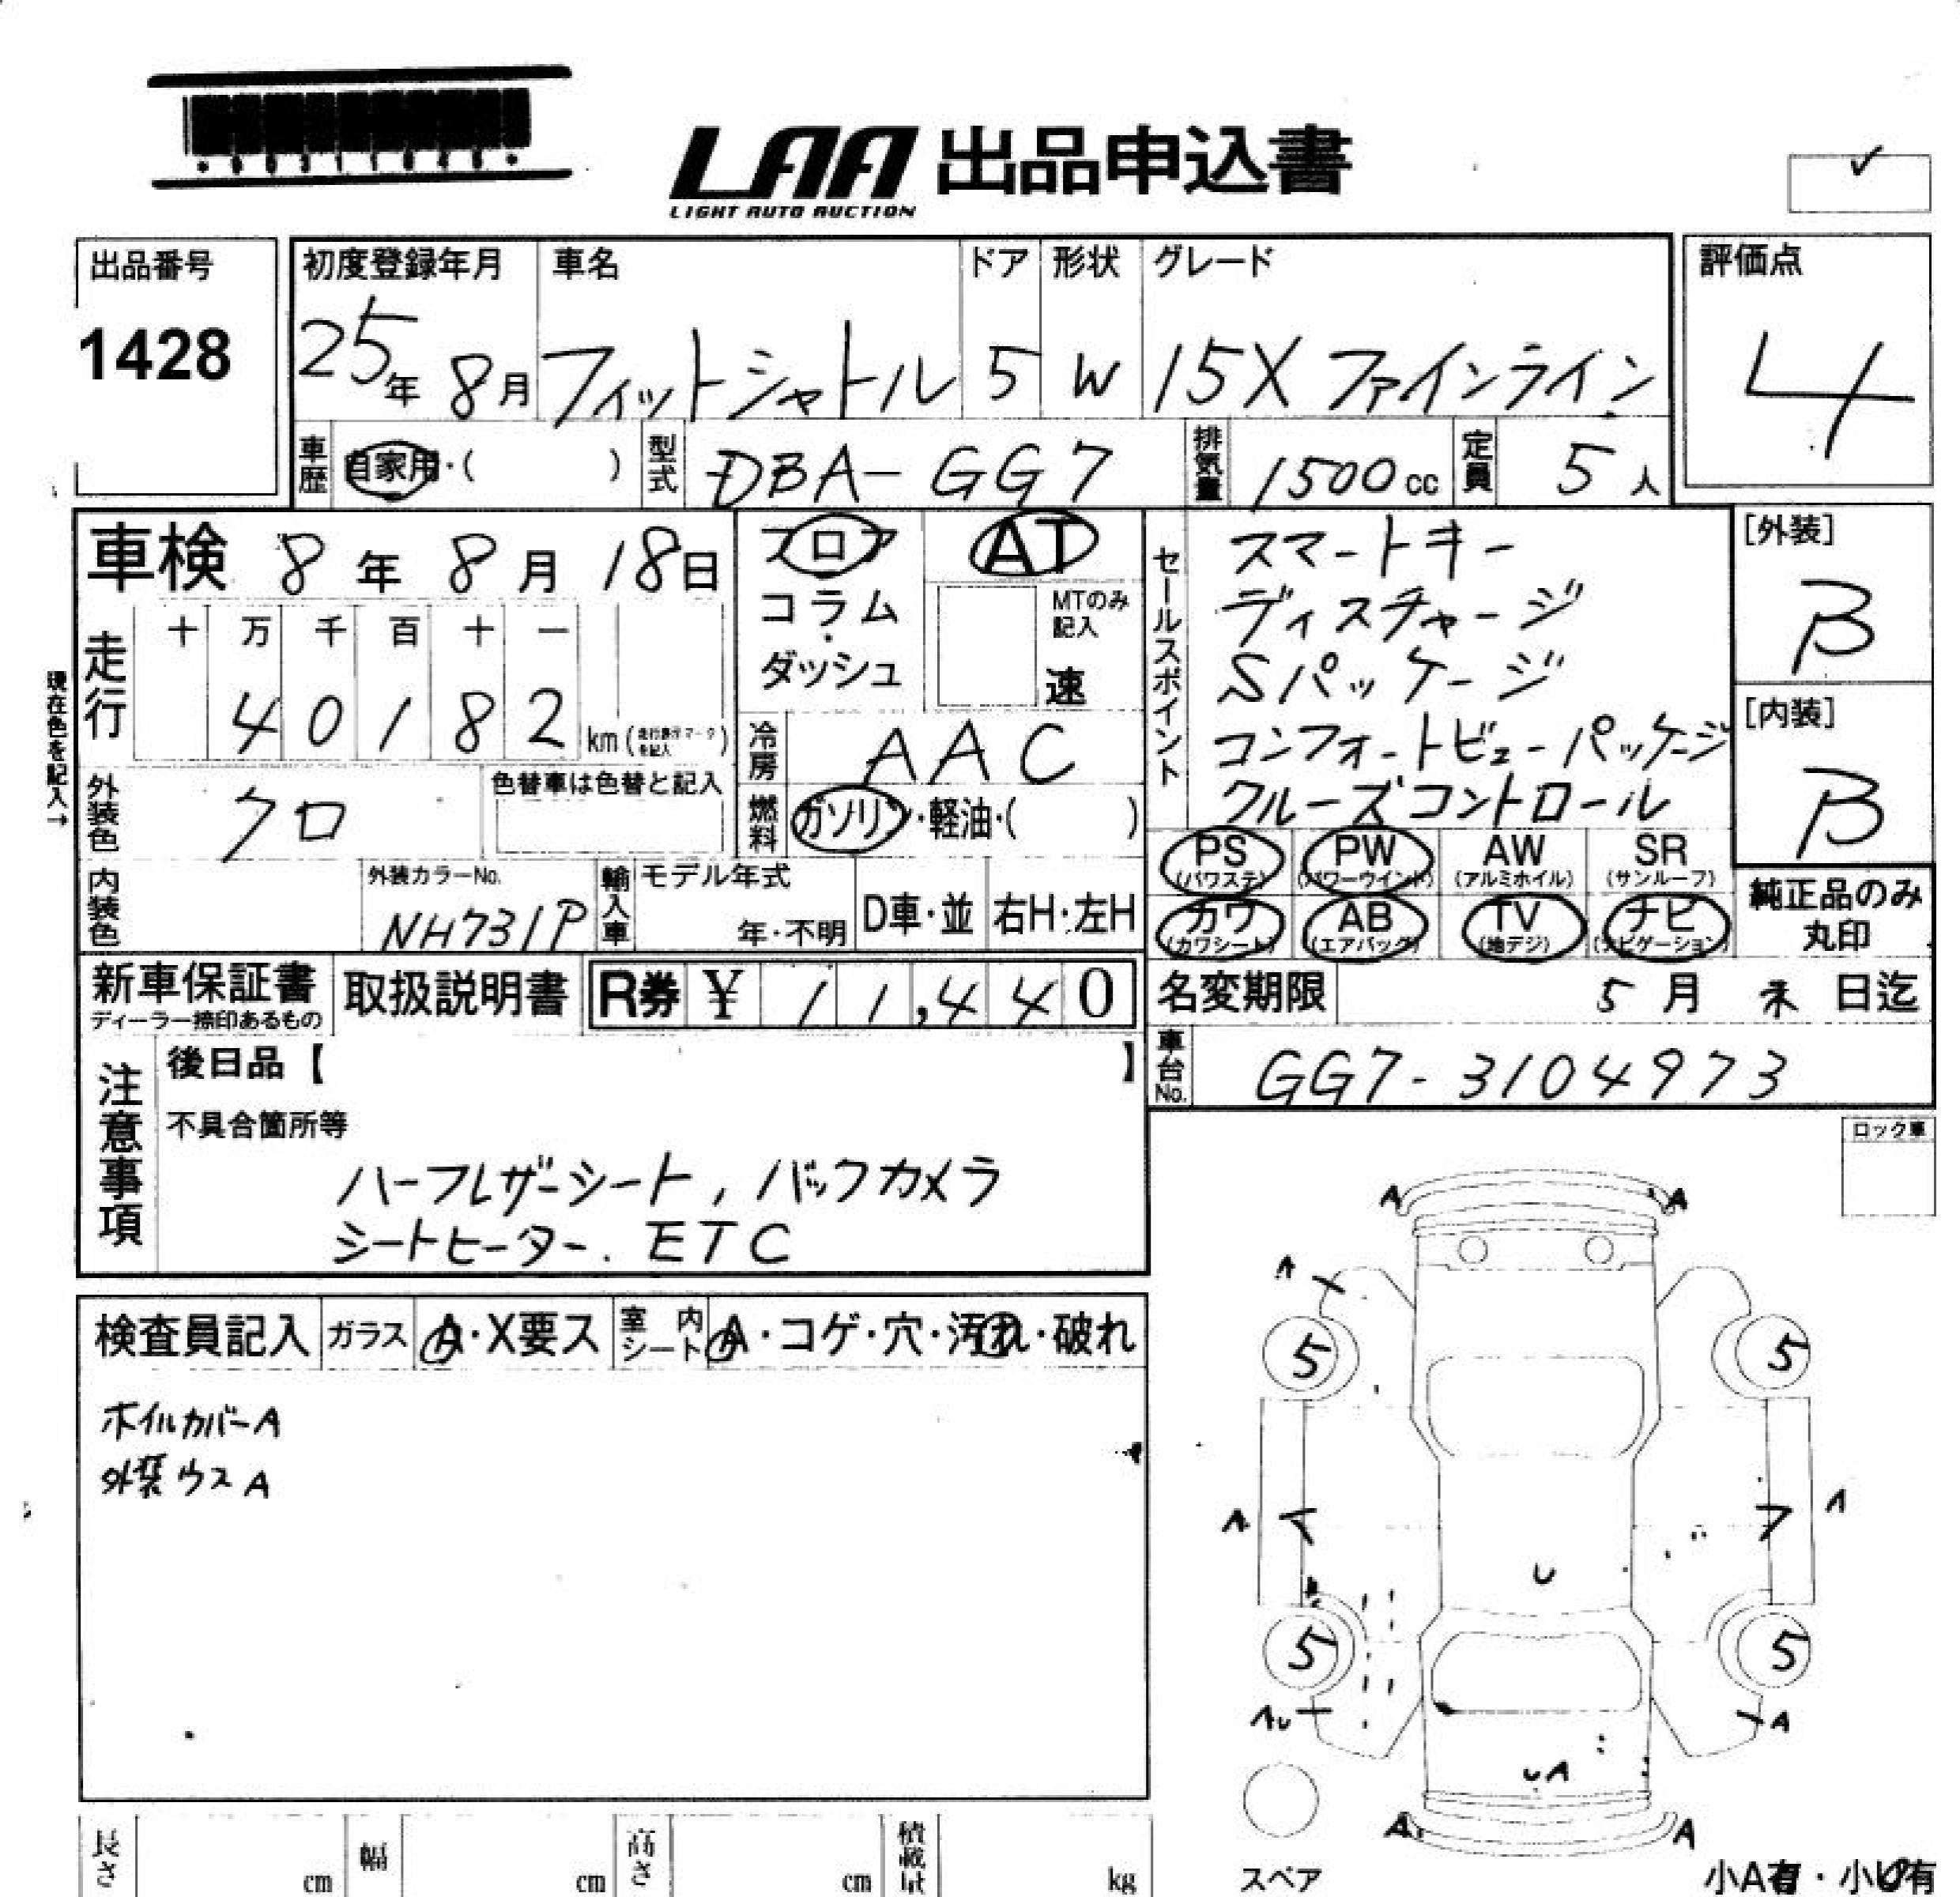 LAA 出品申込書
LIGHT AUTO AUCTION
✓
出品番号
1428
初度登録年月 車名 ドア 形状 グレード
25年 8月 フィットシャトル 5 W 15X ファインライン
評価点
4
車歴 自家用・( ) 型式 DBA-GG7 排気量 1500 cc 定員 5 人
車検 8 年 8 月 18 日
フロア AT
コラム
ダッシュ
MTのみ記入
速
セールスポイント
スマートキー
ディスチャージ
Sパッケージ
コンフォートビューパッケージ
クルーズコントロール
[外装]
B
[内装]
B
走行 十 万 千 百 十 一
40182 km (走行表示マークを記入)
現在色を記入→
冷房 AAC
外装色 クロ
色替車は色替と記入
燃料 ガソリン・軽油・( )
PS (パワステ) PW (パワーウインド) AW (アルミホイル) SR (サンルーフ)
カワ (カワシート) AB (エアバッグ) TV (地デジ) ナビ (ナビゲーション)
純正品のみ
丸印
内装色 外装カラーNo. NH731P
輸入車 モデル年式 年・不明 D車・並 右H・左H
新車保証書 ディーラー捺印あるもの
取扱説明書
R券 ¥ 11,440
名変期限 5 月 末 日迄
車台No. GG7-3104973
注意事項
後日品【 】
不具合箇所等
ハーフレザーシート, バックカメラ
シートヒーター. ETC
ロック車
検査員記入 ガラス A・X要ス 室内シート A・コゲ・穴・汚れ・破れ
ホイルカバーA
外装ウスA
A A
A
5 5
A A
U
5 5
AU A
UA
A A
スペア
小A有・小U有
長さ cm 幅 cm 高さ cm 積載 kg